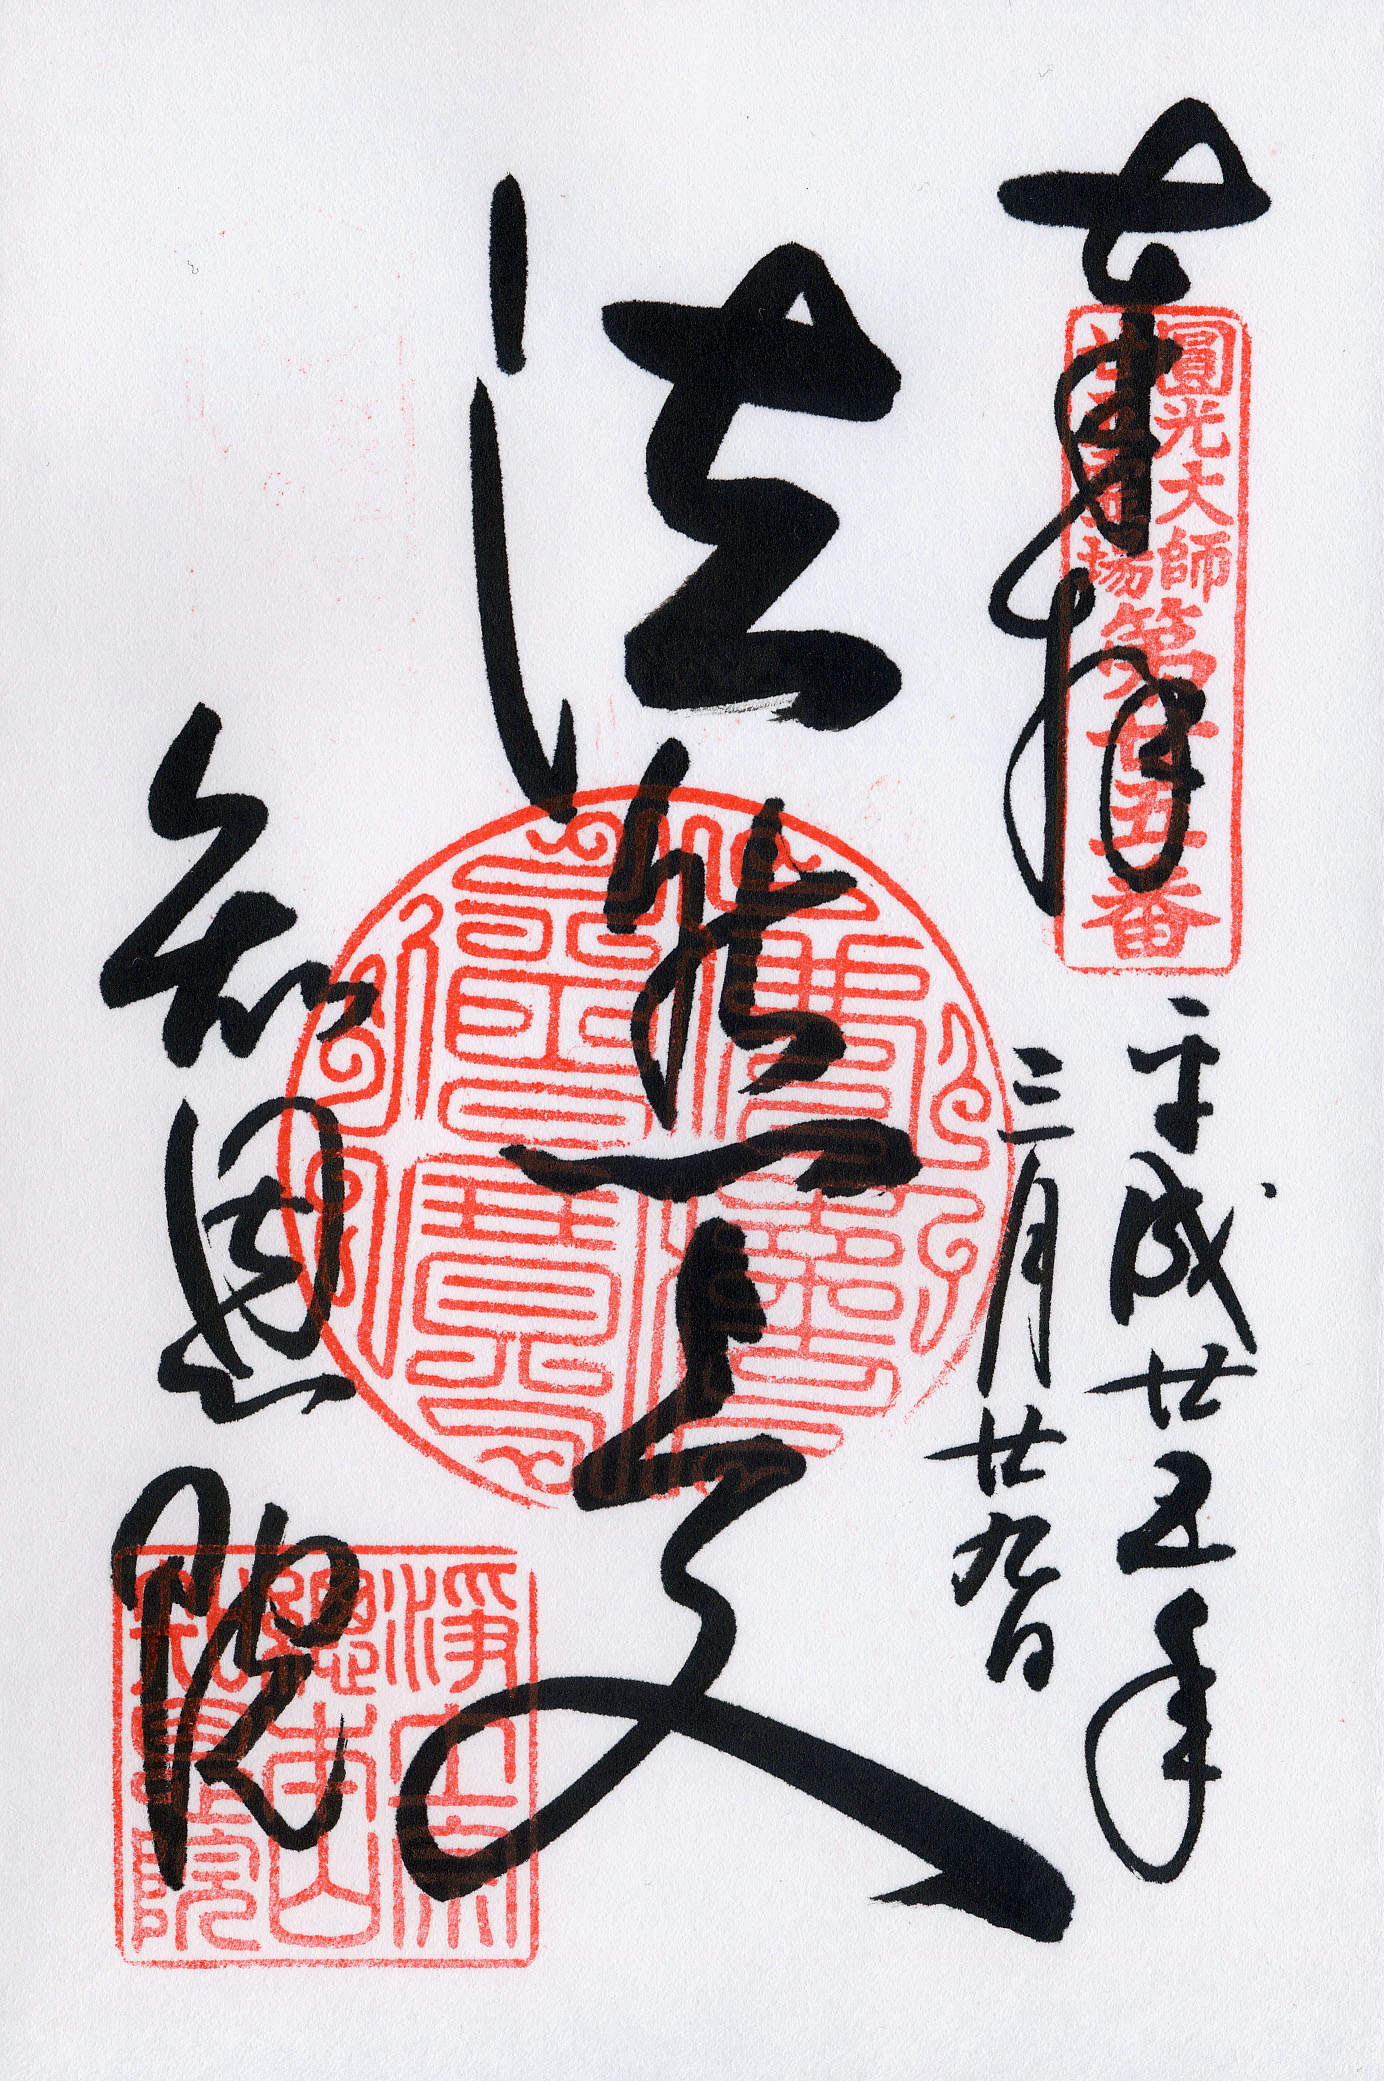 奉拝
圓光大師
廿五霊場
第廿五番
平成廿五年
三月廿九日
法然上人
知恩院
浄土宗
總本山
知恩院